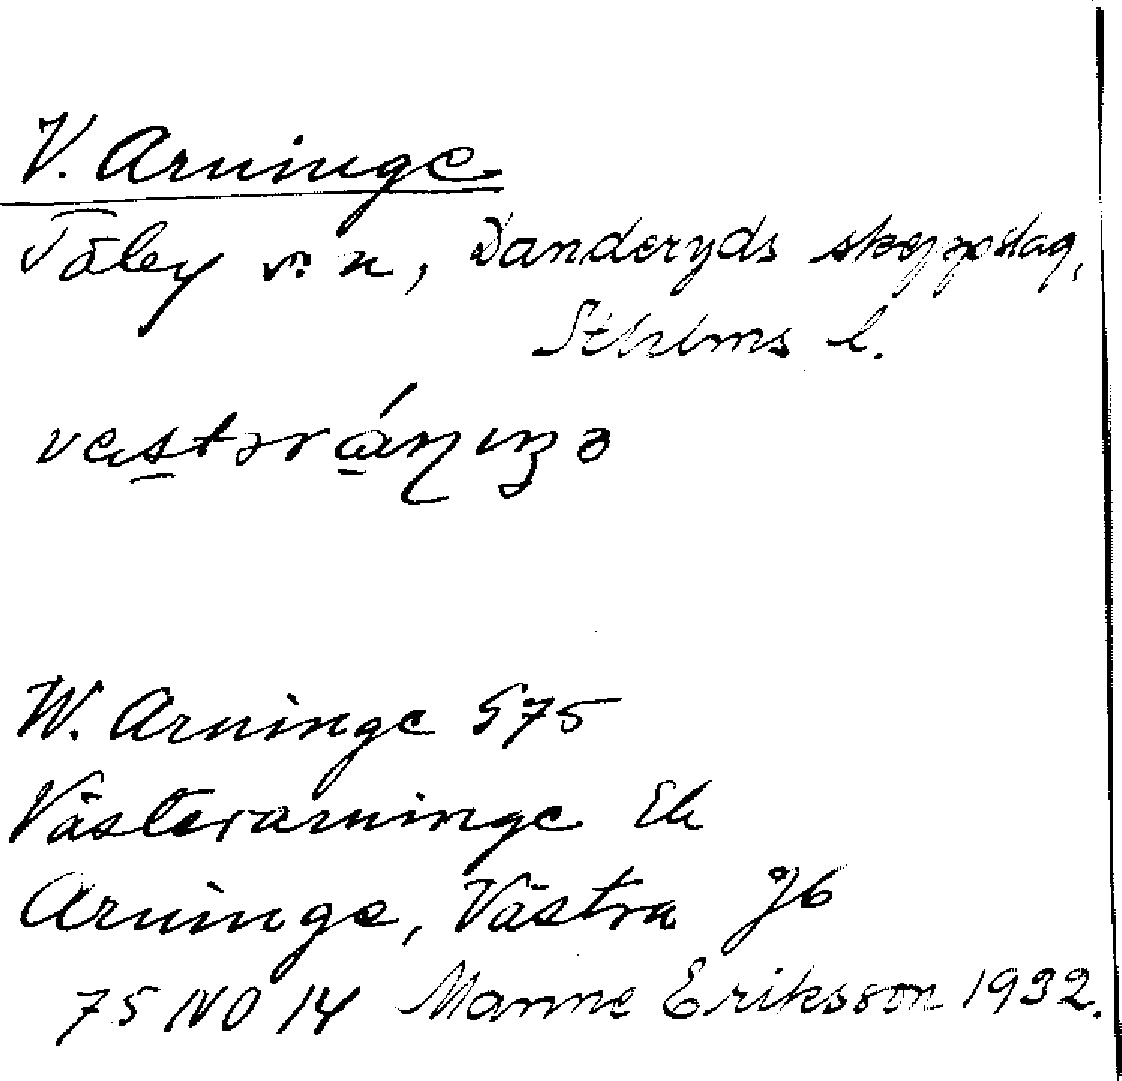 V. Arninge
Täby sn, Danderyds skeppslag,
Sthlms l.
W. Arninge S75
Västerarninge Ek
Arninge, Västra Jb
75 NO 14 Manne Eriksson 1932.